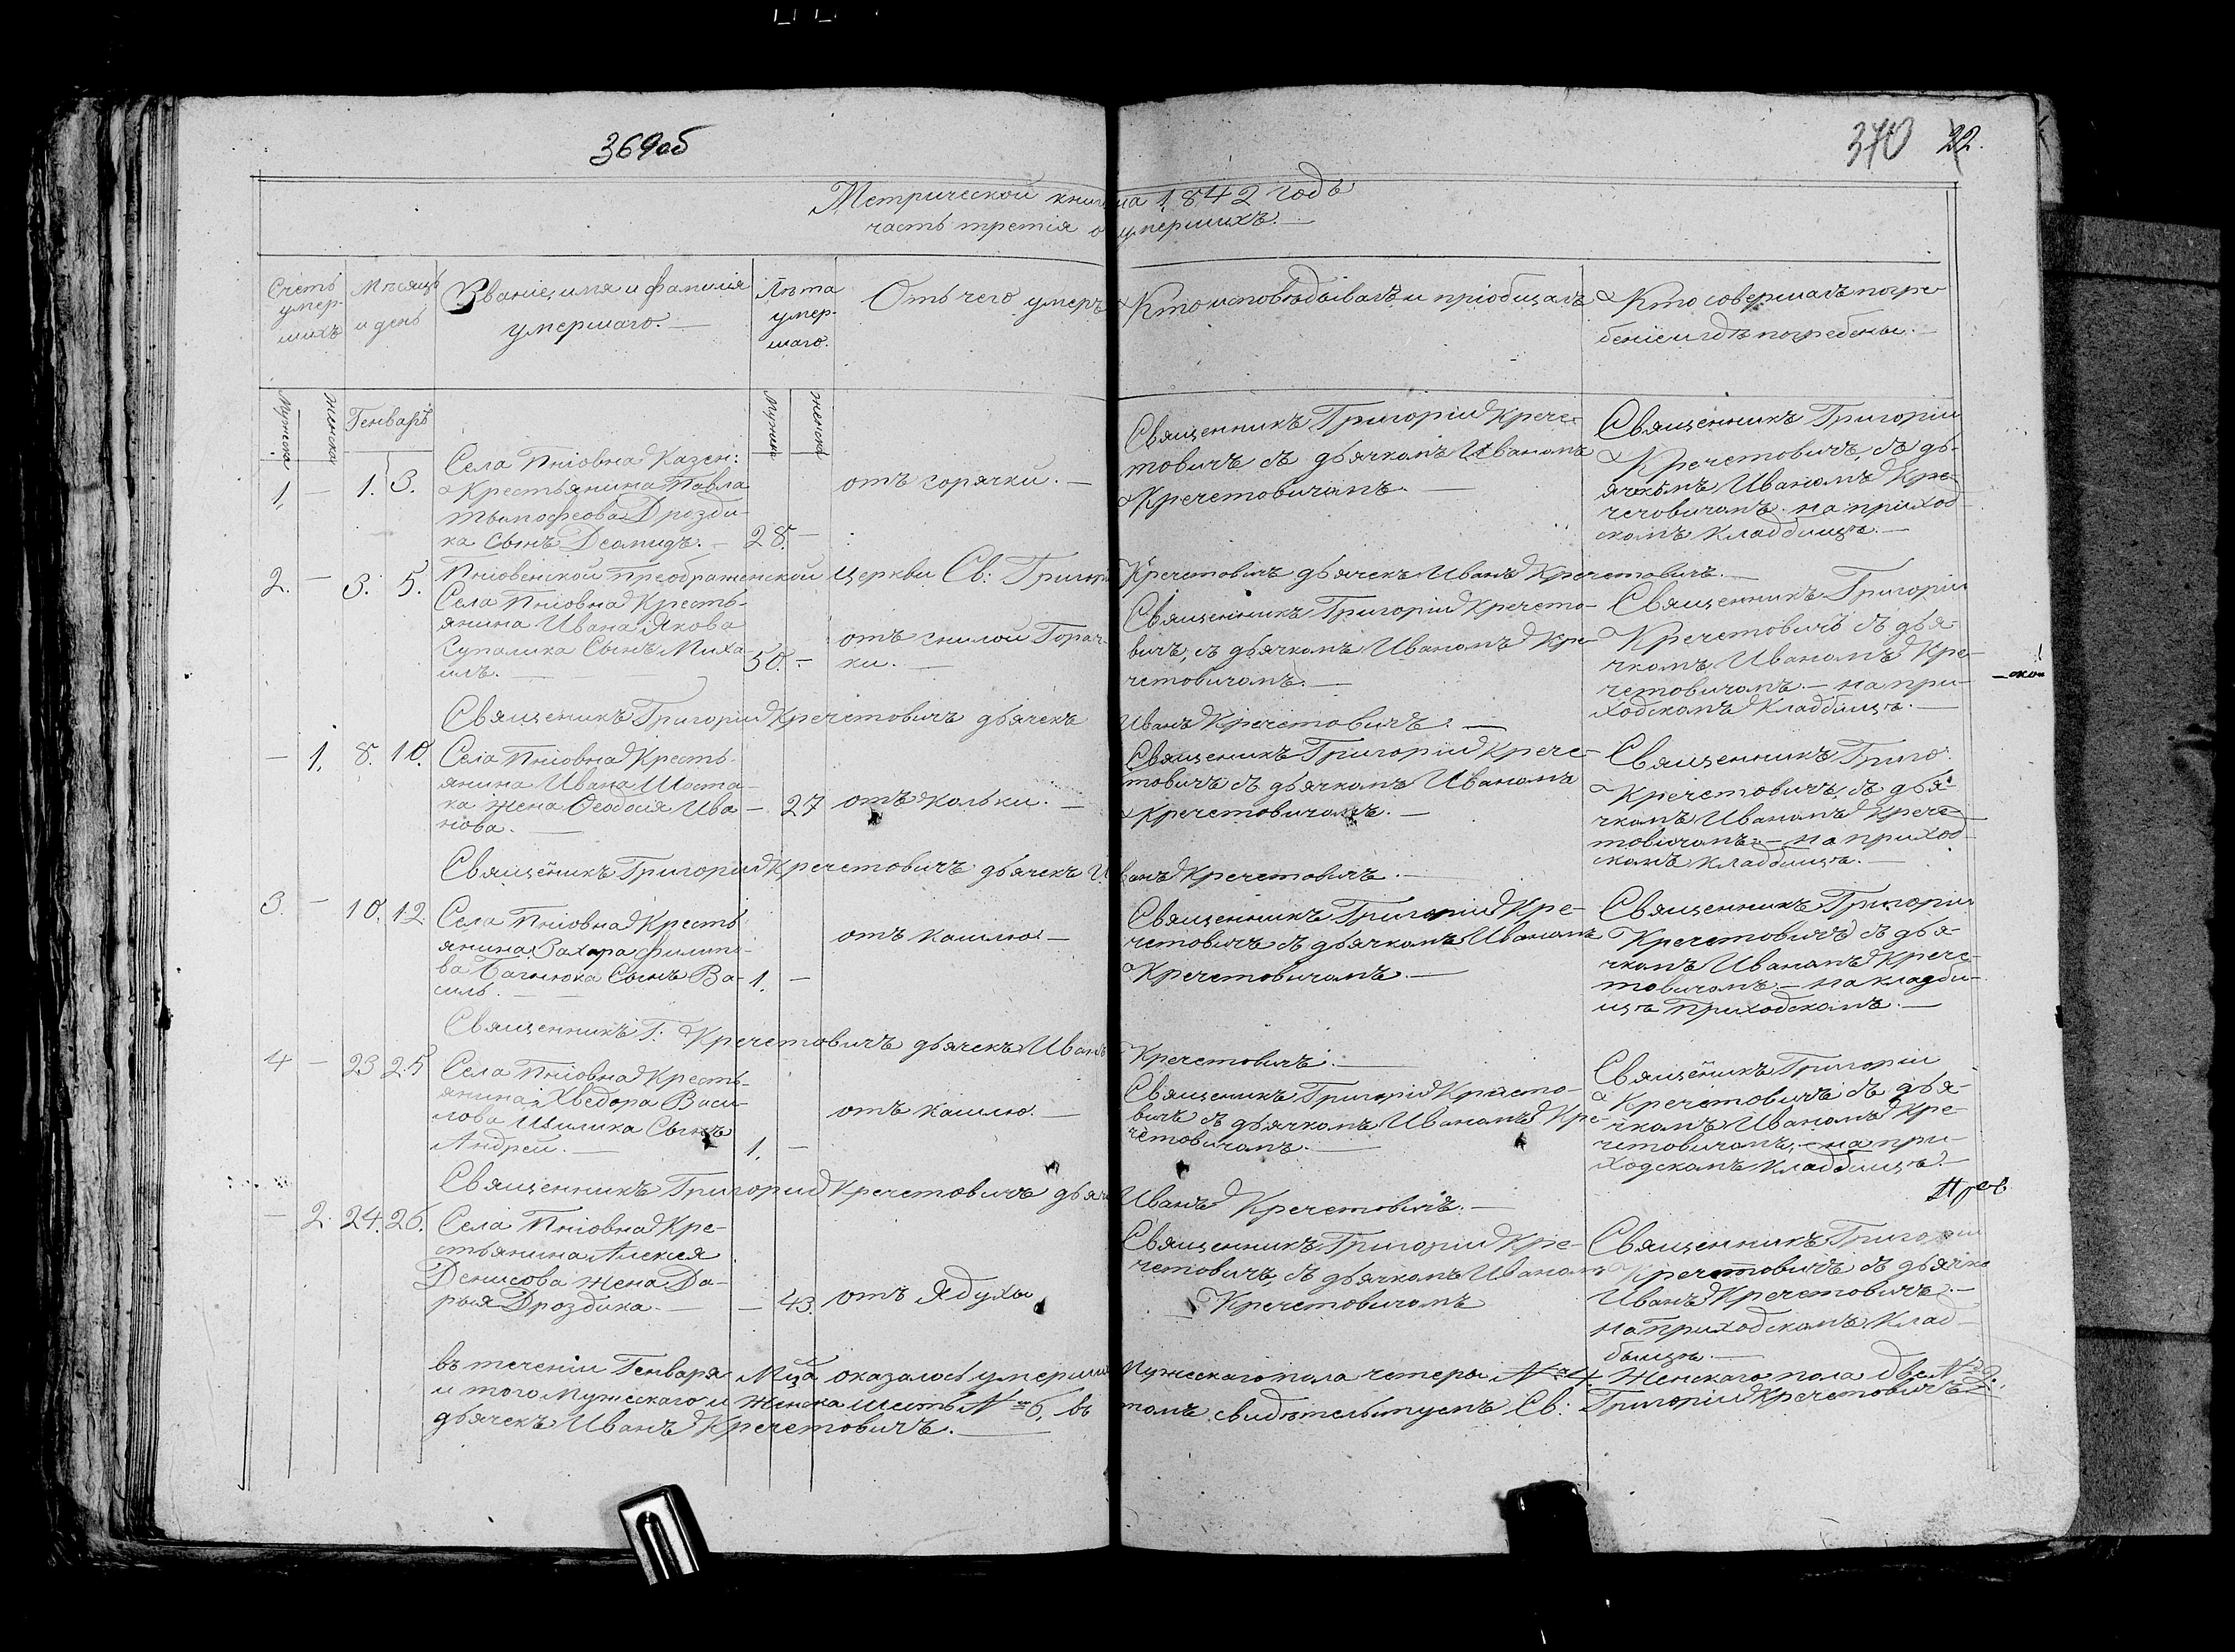 369об
370 22.
Метрической книги на 1842 годъ
часть третія о умершихъ. —
Счетъ умер-шихъ
Мѣсяцъ и день
Званіе, имя и фамилія умершаго. —
Лѣта умер-шаго.
Отъ чего умеръ
Кто исповѣдывалъ и пріобщалъ
Кто совершалъ погре-
беніе и гдѣ погребены. —
Мужска
женска
Генваръ
Мужска
женска
1, — 1. 3.
Села Пніовна Казен:
Крестьянина Павла
Тымофеова Дрозди-
ка сынъ Деомидъ. — 28. —
отъ горячки. —
Священникъ Григорій Крече-
товичъ съ дьячкомъ Иваномъ
Кречетовичомъ. —
Священникъ Григорій
Кречетовичъ, съ дь-
ячкомъ Иваномъ Кре-
чеговичомъ на приход-
скомъ кладбищѣ. —
2. — 3. 5.
Пніовенской преображенской церкви Св: Григорій Кречетовичъ дьячекъ Иванъ Кречетовичъ. —
Села Пніовна Кресть-
янина Ивана Якова
Супалика Сынъ Миха-
илъ. — 50. —
отъ гнилой Горяч-
ки. —
Священникъ Григорій Кречето-
вичъ, съ дьячкомъ Иваномъ Кре-
четовичомъ. —
Священникъ Григорій
Кречетовичъ съ дья-
чкомъ Иваномъ Кре-
четовичомъ. — на при-
ходскомъ кладбищѣ. —
Священикъ Григорій Кречетовичъ дьячекъ Иванъ Кречетовичъ. —
— 1. 8. 10.
Села Пніовна Кресть-
янина Ивана Шоста-
ка жена Феодосія Ива-
нова. — — 27
отъ кольки. —
Священикъ Григорій Крече-
товичъ съ дьячкомъ Иваномъ
Кречетовичомъ. —
Священникъ Григо:
Кречетовичъ, съ дья-
чкомъ Иваномъ Крече-
товичомъ. — на приход-
скомъ кладбищѣ. —
Священикъ Григорій Кречетовичъ дьячекъ Иванъ Кречетовичъ. —
3. — 10. 12.
Села Пніовна Кресть
янина Захара филипо-
ва Багнюка Сынъ Ва-
силь. — 1. —
отъ кашлю —
Священникъ Григорій Кре-
четовичъ съ дьячкомъ Иваномъ
Кречетовичомъ. —
Священникъ Григорій
Кречетовичъ съ дья-
чкомъ Иваномъ Крече-
товичомъ. — на кладби-
щѣ приходскомъ. —
Священникъ Г: Кречетовичъ дьячекъ Иванъ Кречетовичъ. —
4 — 23 25
Села Пніовна Кресть-
янина Хведора Васи-
лова Сынъ
Андрей. — 1. —
отъ кашлю. —
Священикъ Григорій Кречето-
вичъ съ дьячкомъ Иваномъ Кре-
четовичомъ. —
Священикъ Григорій
Кречетовичъ съ дья-
чкомъ Иваномъ Кре-
четовичомъ, — на при-
ходскомъ кладбищѣ. —
Священникъ Григорій Кречетовичъ дьячекъ Иванъ Кречетовичъ. —
— 2. 24. 26.
Села Пніовна Кре-
стьянина Алексея
Денисова жена Да-
рыя Дроздика. — — 43.
отъ Ядухы
Священникъ Григорій Кре-
четовичъ, съ дьячкомъ Иваномъ
Кречетовичомъ
Священникъ Григорій
Кречетовичъ съ дьячко
Иванъ Кречетовичъ. —
на приходскомъ клад-
бищѣ. —
въ теченіи Генваря Мца оказалось умершихъ Мужескаго пола четеры № 4. Женскаго пола две № 2.
и того Мужескаго и Женска шесть № 6, въ томъ свидѣтельствуемъ Св: Григорій Кречетовичъ
дьячекъ Иванъ Кречетовичъ. —